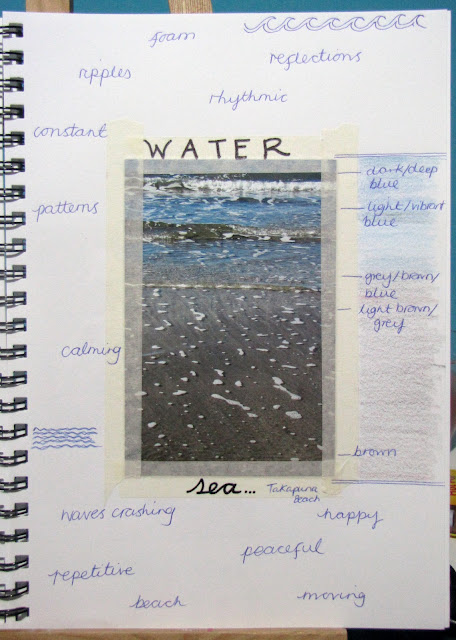 foam
reflections
ripples
rhythmic
constant
WATER
dark/deep
blue
patterns
light/vibrant
blue
grey/brown/
blue
light brown/
grey
calming
brown
sea...
Takapuna
Beach
waves crashing
happy
peaceful
repetitive
beach
moving